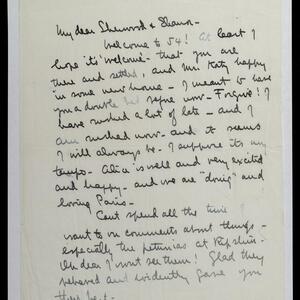 My dear Sherwood & Sharon -
Welcome to 54! At least I
hope it's 'welcome' - that you are
there and settled, and Mr. Katz happy
in some new home - I meant to have
you a double before now - Forgive! I
have rushed a lot of late - and I
am rushed now - and it seems
I will always be. I suppose it's my
tempo. Alice is well and very excited
and happy - and we are "doing" and
loving Paris -
Cant spend all the time I
want to on comments about things -
especially the petunias at
Oh dear I wont see them! Glad they
behaved and evidently gave you
their best -